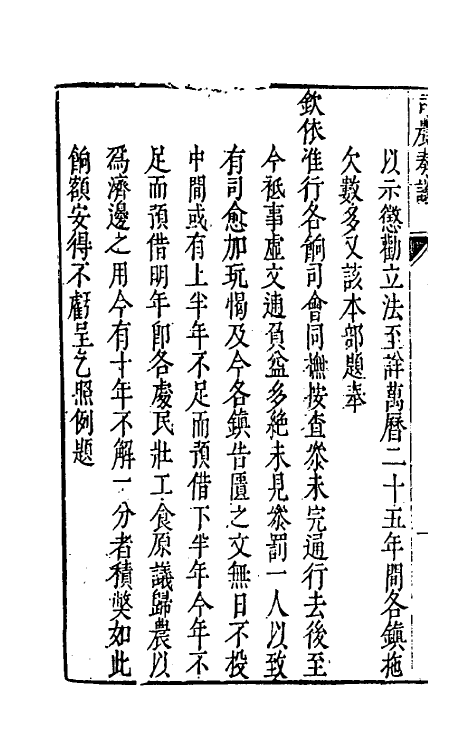 司農奏議
以示懲勸立法至詳萬曆二十五年間各鎮拖
欠數多又該本部題奉
欽依准行各餉司會同撫按查叅未完通行去後至
今袛事虛文逋負益多絶未見叅罰一人以致
有司愈加玩愒及今各鎮告匱之文無日不投
中間或有上半年不足而預借下半年今年不
足而預借明年卽各處民壯工食原議歸農以
爲濟邊之用今有十年不解一分者積獘如此
餉額安得不虧呈乞照例題